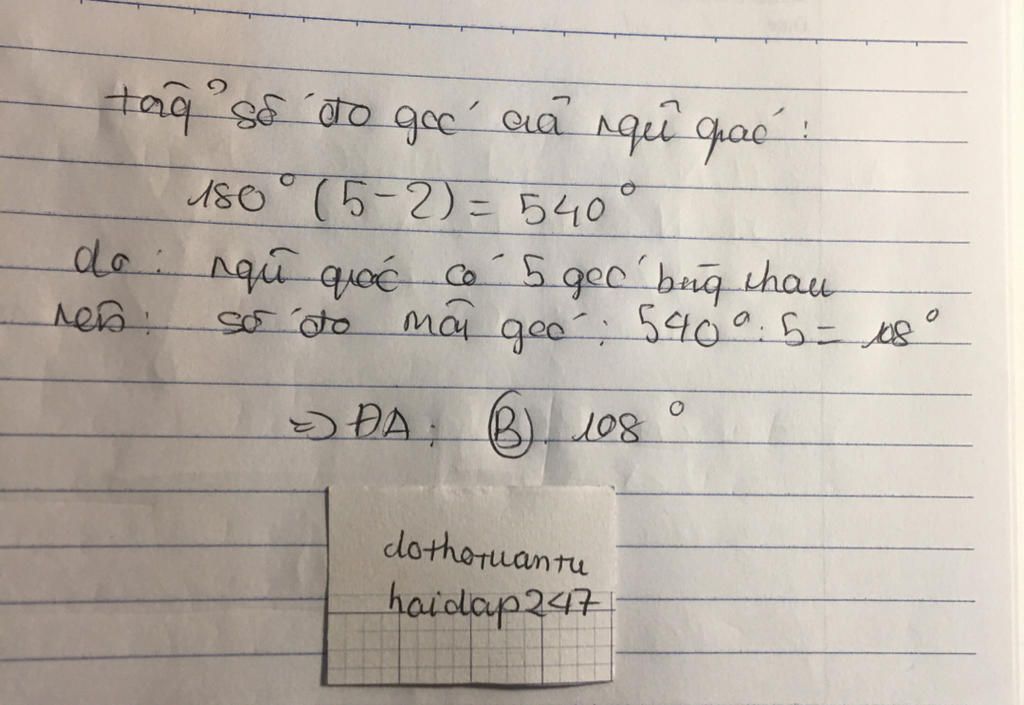 tổng số đo góc của ngũ giác :
180° (5-2) = 540°
do : ngũ giác có 5 góc bằng nhau
nên : số đo mỗi góc : 540° : 5 = 108°
=> ĐA : B). 108°
dothotuantu
haidap247